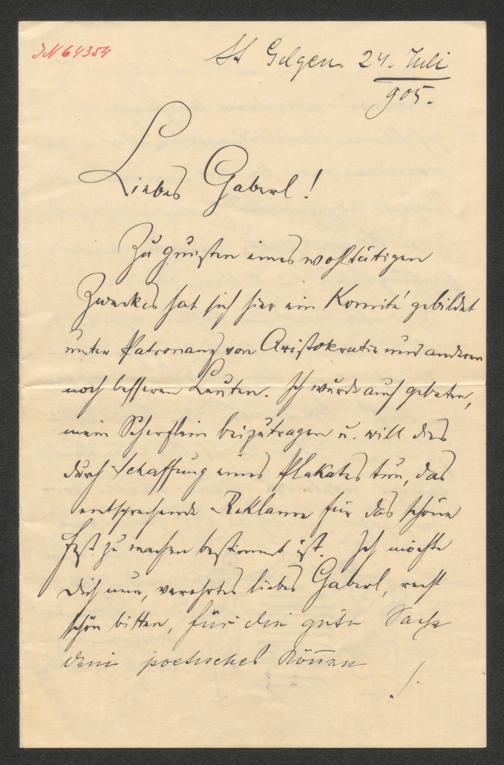 JN 64354
St Gilgen 24. Juli
905.
Liebes Gaberl!
Zu gunsten eines wohltätigen
Zweckes hat sich hier ein Komité gebildet
unter Patronanz von Aristokratie und anderen
noch besseren Leuten. Ich wurde auch gebeten,
mein Scherflein beizutragen u. will dies
durch Schaffung eines Plakates tun, das
entsprechende Reklame für das schöne
Fest zu machen bestimmt ist. Ich möchte
Dich nun, verehrtes liebes Gaberl, recht
schön bitten, für die gute Sache
dein poetisches Können
./.